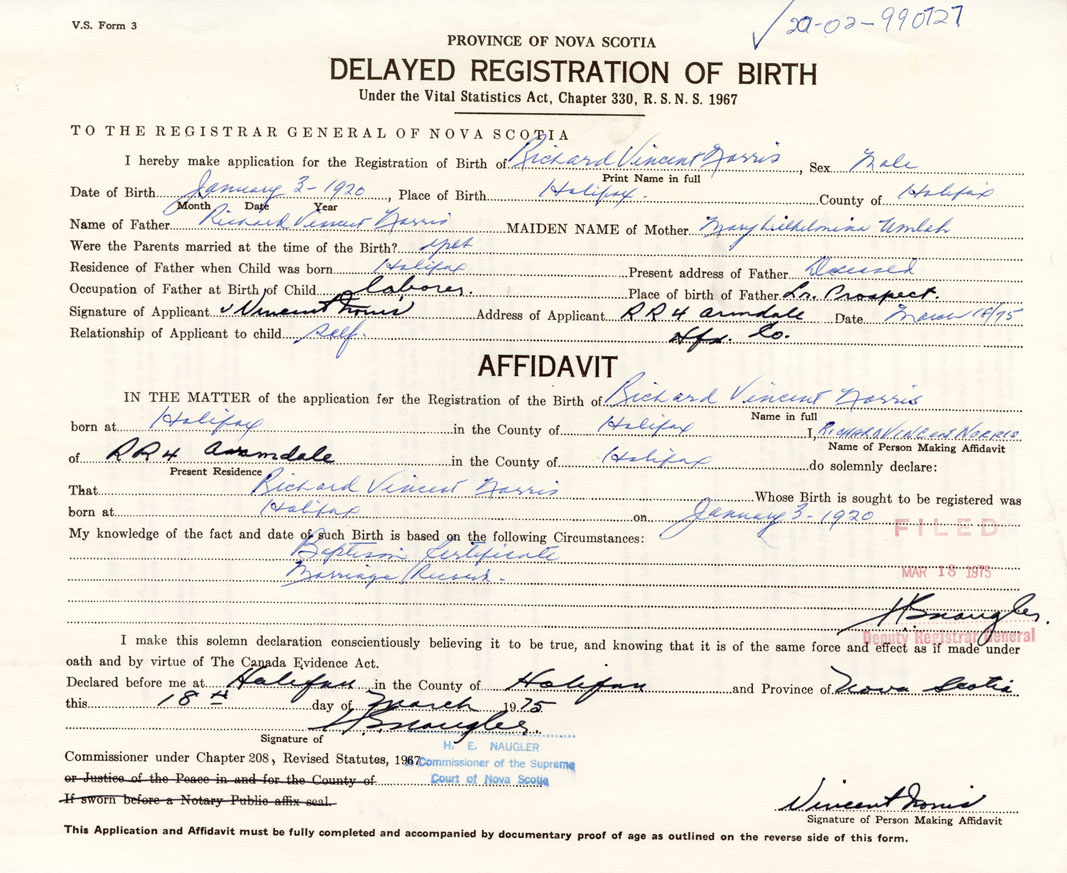 V.S. Form 3
22-02-990727
PROVINCE OF NOVA SCOTIA
DELAYED REGISTRATION OF BIRTH
Under the Vital Statistics Act, Chapter 330, R. S. N. S. 1967
TO THE REGISTRAR GENERAL OF NOVA SCOTIA
I hereby make application for the Registration of Birth of Richard Vincent Norris, Sex Male
Print Name in full
Date of Birth January 3 - 1920, Place of Birth Halifax. County of Halifax
Month Date Year
Name of Father Richard Vincent Norris MAIDEN NAME of Mother Mary Wilhelmina Umlah
Were the Parents married at the time of the Birth? yes
Residence of Father when Child was born Halifax Present address of Father Deceased
Occupation of Father at Birth of Child laborer. Place of birth of Father Lr. Prospect.
Signature of Applicant Vincent Norris Address of Applicant R R 4 Armdale Date March 18/75
Relationship of Applicant to child self. Hfx. Co.
AFFIDAVIT
IN THE MATTER of the application for the Registration of the Birth of Richard Vincent Norris
Name in full
born at Halifax in the County of Halifax I, RICHARD VINCENT NORRIS
Name of Person Making Affidavit
of R R 4 Armdale in the County of Halifax do solemnly declare:
Present Residence
That Richard Vincent Norris Whose Birth is sought to be registered was
born at Halifax on January 3 - 1920
FILED
My knowledge of the fact and date of such Birth is based on the following Circumstances:
Baptism Certificate
Marriage Record.
MAR 18 1975
H E Naugler.
Deputy Registrar General
I make this solemn declaration conscientiously believing it to be true, and knowing that it is of the same force and effect as if made under
oath and by virtue of The Canada Evidence Act.
Declared before me at Halifax in the County of Halifax and Province of Nova Scotia
this 18th day of March 1975.
H E Naugler.
Signature of
H. E. NAUGLER
Commissioner under Chapter 208, Revised Statutes, 1967 Commissioner of the Supreme
or Justice of the Peace in and for the County of Court of Nova Scotia
If sworn before a Notary Public affix seal.
Vincent Norris
Signature of Person Making Affidavit
This Application and Affidavit must be fully completed and accompanied by documentary proof of age as outlined on the reverse side of this form.